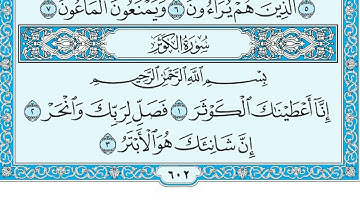 ٥ الَّذِينَ هُمْ يُرَآءُونَ ٦ وَيَمْنَعُونَ الْمَاعُونَ ٧
سُورَةُ الكَوْثَرِ
بِسْمِ اللَّهِ الرَّحْمَٰنِ الرَّحِيمِ
إِنَّا أَعْطَيْنَاكَ الْكَوْثَرَ ١ فَصَلِّ لِرَبِّكَ وَانْحَرْ ٢
إِنَّ شَانِئَكَ هُوَ الْأَبْتَرُ ٣
٦٠٢